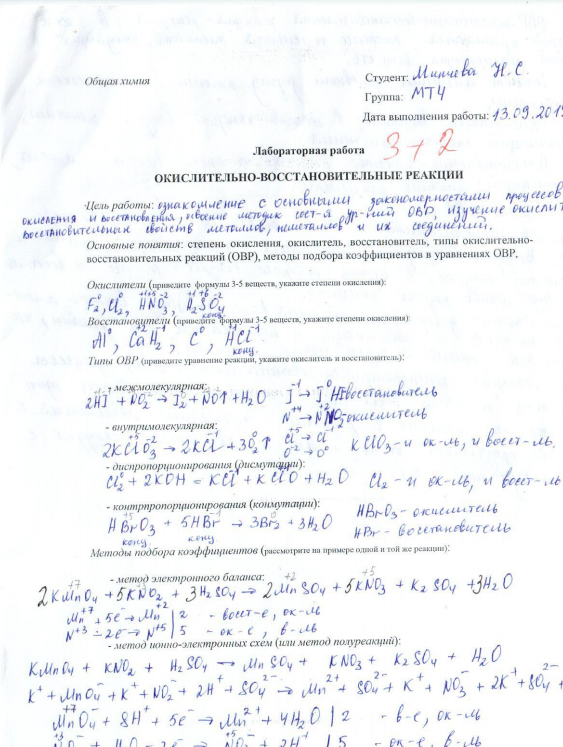 Общая химия
Студент: Минчева Н.С.
Группа: МТ4
Дата выполнения работы: 13.09.201
3+2
Лабораторная работа
ОКИСЛИТЕЛЬНО-ВОССТАНОВИТЕЛЬНЫЕ РЕАКЦИИ
Цель работы: ознакомление с основными закономерностями процессов
окисления и восстановления, освоение методик сост-я ур-ний ОВР, изучение окислит
восстановительных свойств металлов, неметаллов и их соединений.
Основные понятия: степень окисления, окислитель, восстановитель, типы окислительно-
восстановительных реакций (ОВР), методы подбора коэффициентов в уравнениях ОВР,
Окислители (приведите формулы 3-5 веществ, укажите степени окисления):
F₂⁰, Cl₂⁰, H⁺¹N⁺⁵O₃⁻², H₂⁺¹S⁺⁶O₄ конц.
Восстановители (приведите формулы 3-5 веществ, укажите степени окисления):
Al⁰, Ca⁺²H₂⁻¹, C⁰, H⁺¹Cl⁻¹ конц.
Типы ОВР (приведите уравнение реакции, укажите окислитель и восстановитель):
- межмолекулярная:
2HI + NO₂ → I₂ + NO↑ + H₂O I⁻¹ → I⁰ HI-восстановитель
N⁺⁴ → N⁺² NO₂-окислитель
- внутримолекулярная:
2KCl⁺⁵O₃⁻² → 2KCl⁻¹ + 3O₂⁰↑ Cl⁺⁵ → Cl⁻¹ KClO₃ - и ок-ль, и восст-ль.
O⁻² → O⁰
- диспропорционирования (дисмутации):
Cl₂⁰ + 2KOH = KCl⁻¹ + KCl⁺¹O + H₂O Cl₂ - и ок-ль, и восст-ль
- контрпропорционирования (конмутации):
HBrO₃ + 5HBr → 3Br₂ + 3H₂O HBrO₃ - окислитель
конц. конц. HBr - восстановитель
Методы подбора коэффициентов (рассмотрите на примере одной и той же реакции):
- метод электронного баланса:
2KMnO₄ + 5KNO₂ + 3H₂SO₄ → 2MnSO₄ + 5KNO₃ + K₂SO₄ + 3H₂O
Mn⁺⁷ + 5e⁻ → Mn⁺² | 2 - восст-е, ок-ль
N⁺³ - 2e⁻ → N⁺⁵ | 5 - ок-е, в-ль
- метод ионно-электронных схем (или метод полуреакций):
KMnO₄ + KNO₂ + H₂SO₄ → MnSO₄ + KNO₃ + K₂SO₄ + H₂O
K⁺ + MnO₄⁻ + K⁺ + NO₂⁻ + 2H⁺ + SO₄²⁻ → Mn²⁺ + SO₄²⁻ + K⁺ + NO₃⁻ + 2K⁺ + SO₄²⁻ +
MnO₄⁻ + 8H⁺ + 5e⁻ → Mn²⁺ + 4H₂O | 2 - в-е, ок-ль
NO₂⁻ + H₂O - 2e⁻ → NO₃⁻ + 2H⁺ | 5 - ок-е, в-ль